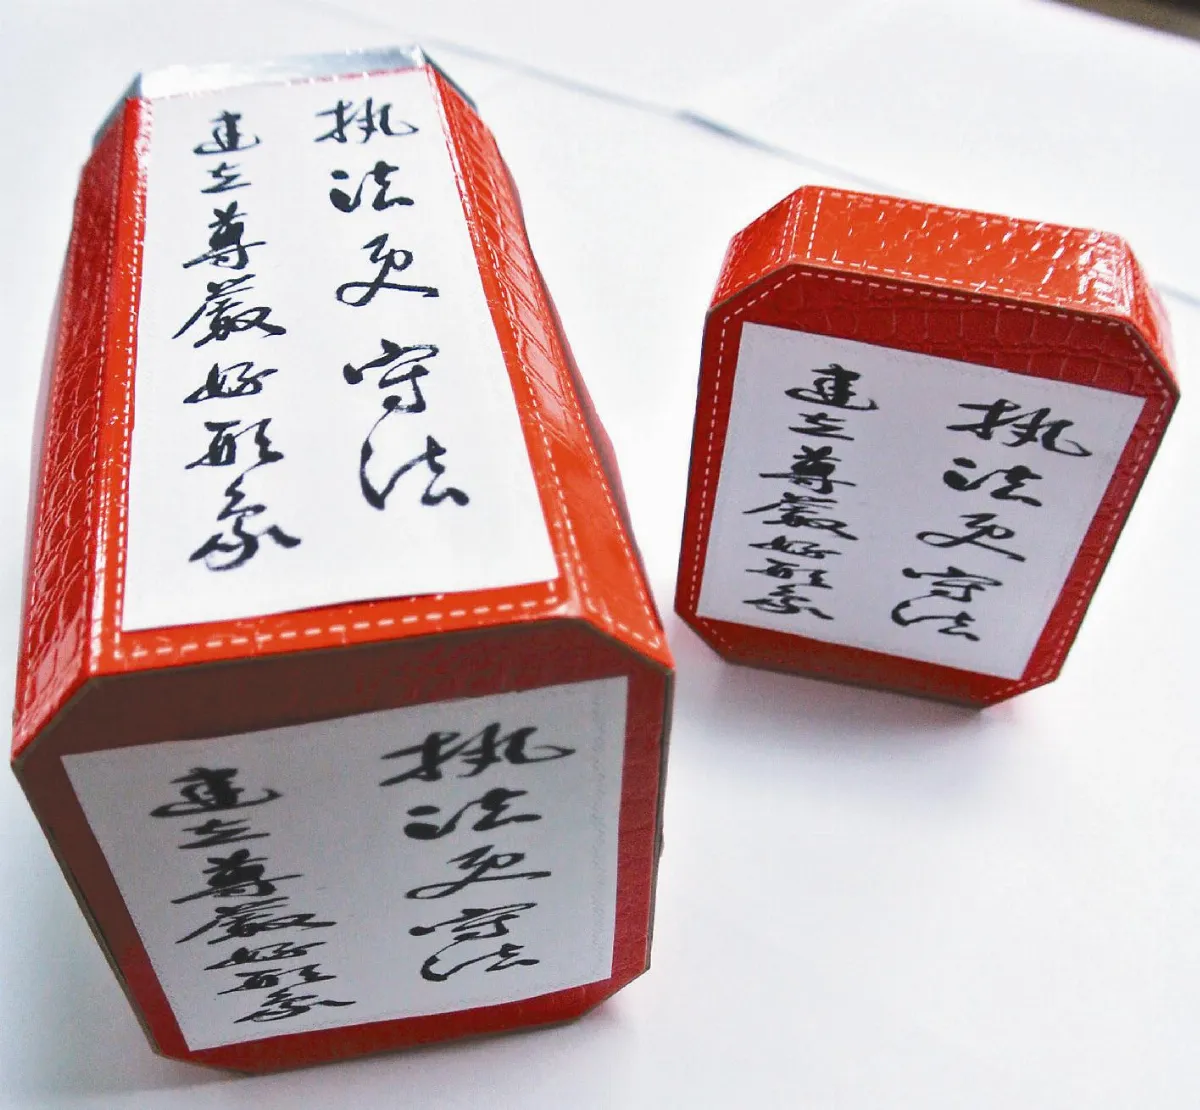 执法更守法
建立尊嚴好形象
执法更守法
建立尊嚴好形象
执法更守法
建立尊嚴好形象